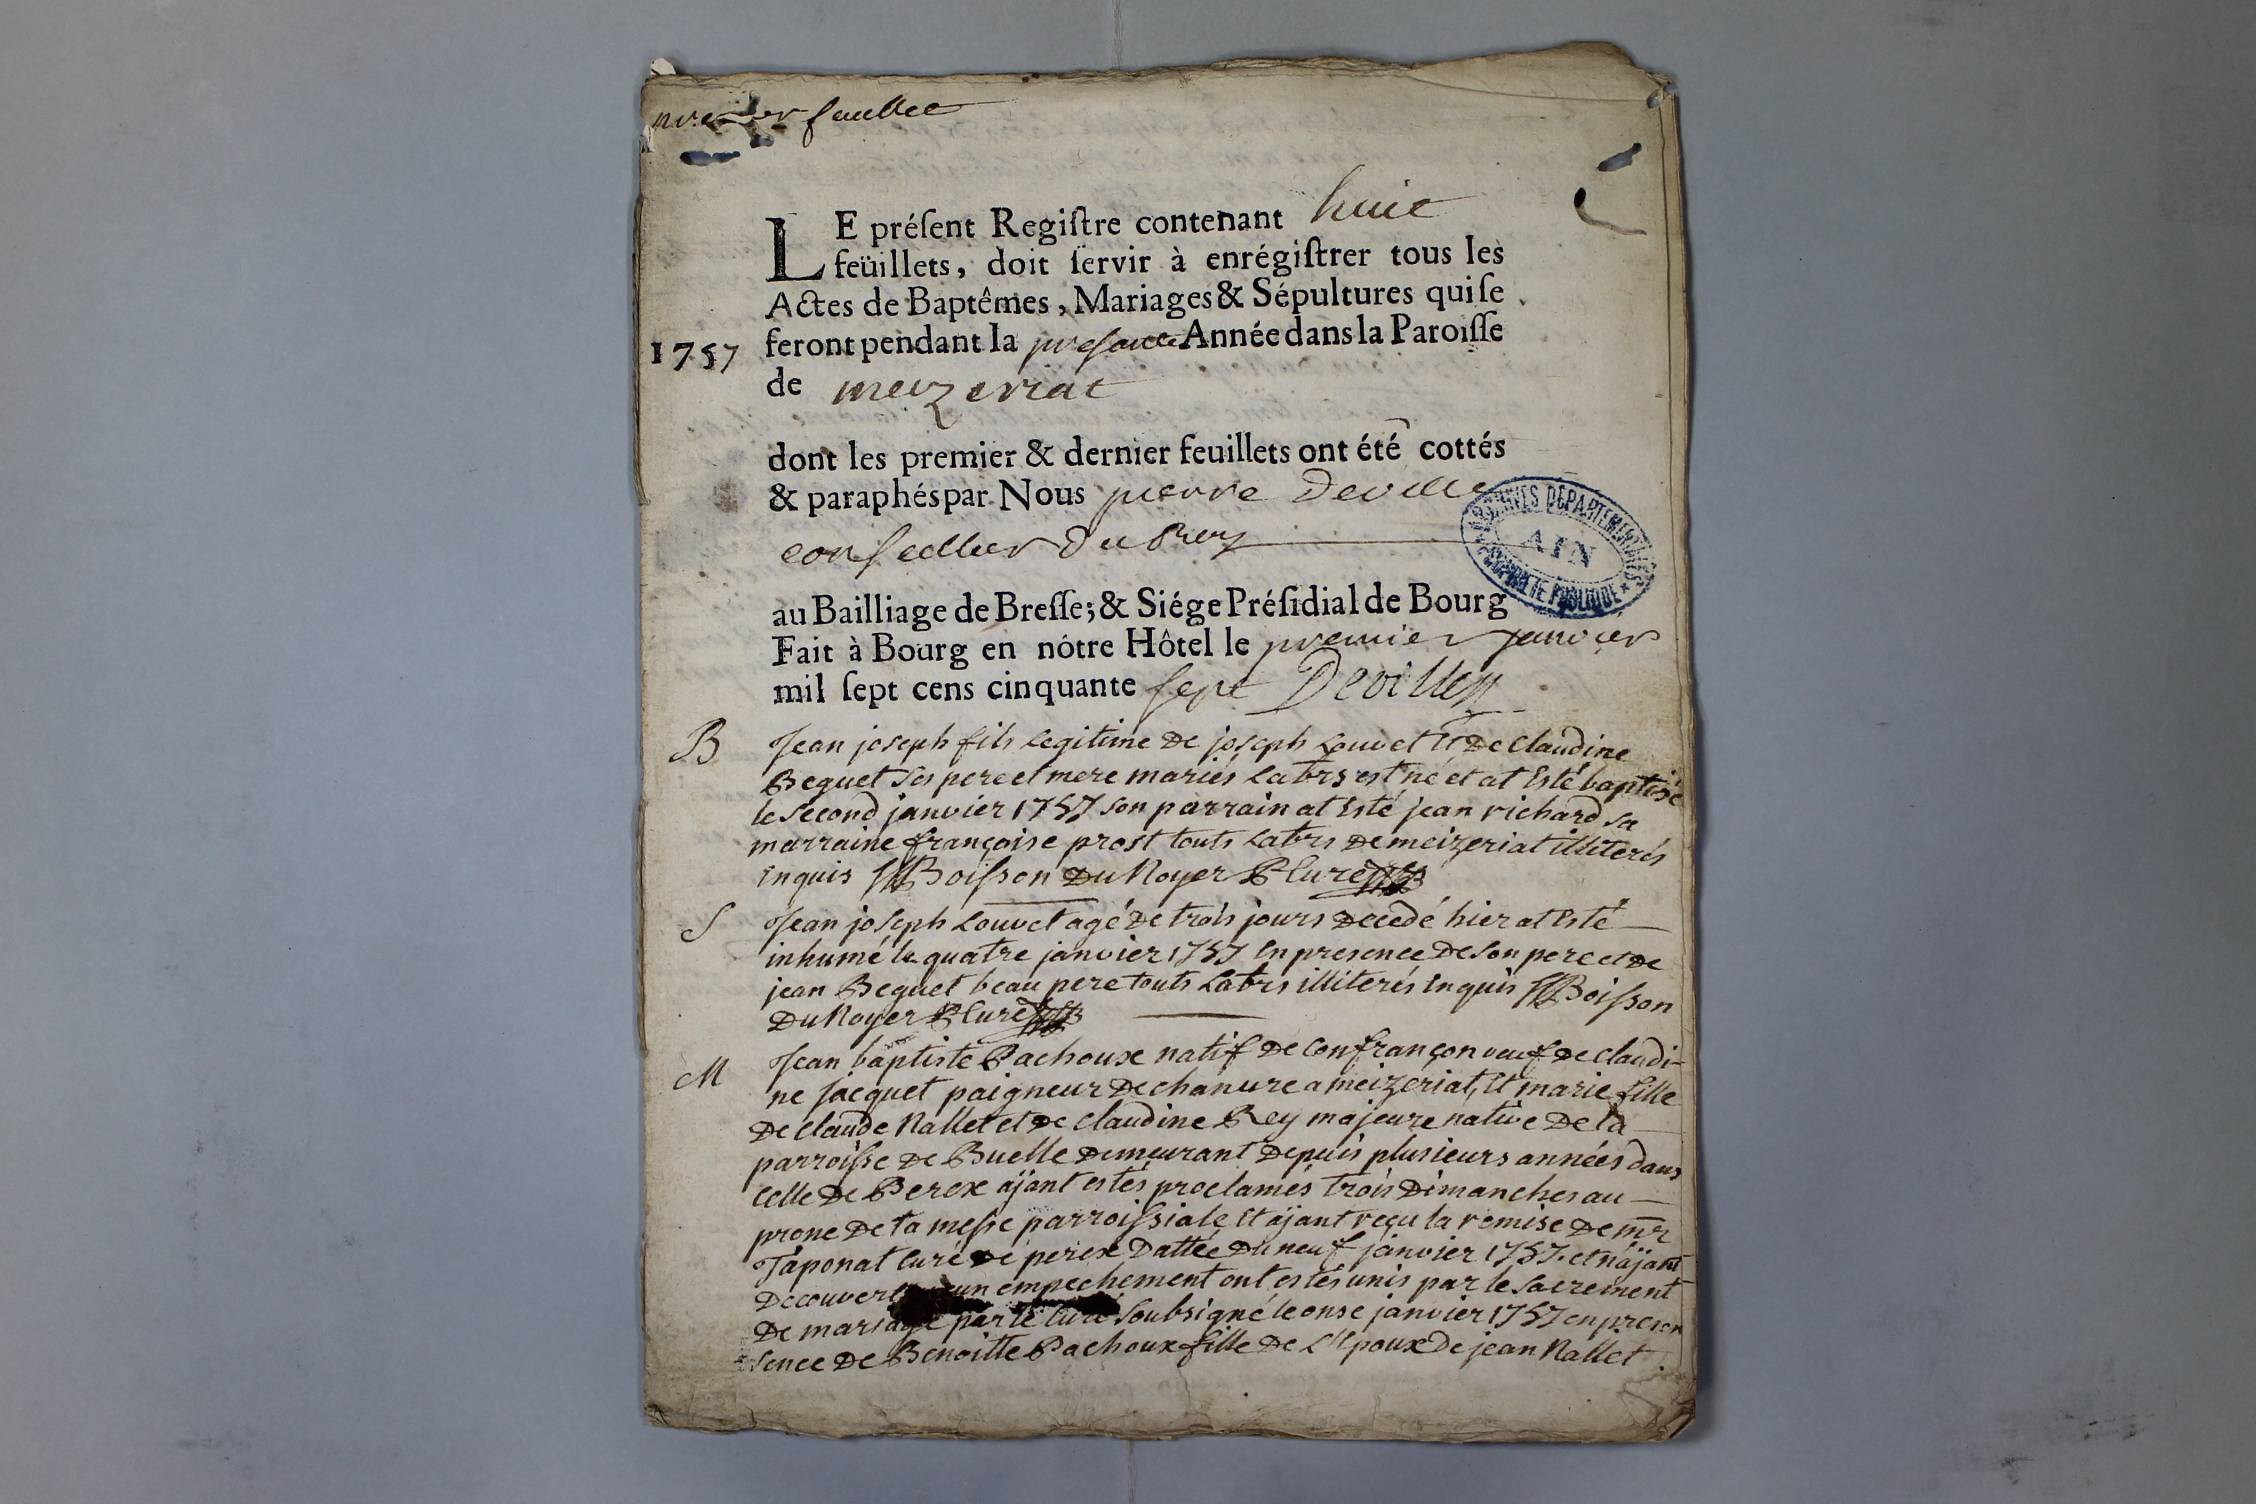 premier feuillet
LE préſent Regiſtre contenant huit
feüillets, doit ſervir à enrégiſtrer tous les
Actes de Baptêmes, Mariages & Sépultures qui ſe
1757 feront pendant la presente Année dans la Paroiſſe
de meizeriat
dont les premier & dernier feuillets ont été cottés
& paraphés par Nous pierre Deville
conseiller du Roy
ARCHIVES DÉPARTEMENTALES AIN PROPRIÉTÉ PUBLIQUE
au Bailliage de Breſſe; & Siége Préſidial de Bourg
Fait à Bourg en nótre Hôtel le premier janvier
mil ſept cens cinquante sept Deville
B Jean joseph fils legitime de joseph Louvet Et De Claudine
Beguet ses pere et mere mariés Labrs est né et at Esté baptisé
le second janvier 1757 son parrain at Esté jean richard sa
marraine françoise prost touts Labrs De meizeriat illiterés
Enquis Boisson Du Noyer Curé
S Jean joseph Louvet agé De trois jours Decedé hier at Esté
inhumé le quatre janvier 1757 En presence De son pere et De
jean Beguet beau pere touts Labrs illiterés Enquis Boisson
Du Noyer Curé
M Jean baptiste Pachoux natif De Confrançon veuf De claudi-
ne jacquet paigneur De chanure a meizériat, Et marie fille
De claude Nallet et De claudine Rey majeure native De la
parroisse De Buelle Demeurant Depuis plusieurs années dans
Celle De Perex aÿant estés proclamés trois Dimanches au
prone De la messe parroissiale Et aÿant reçu la remise De mr
Taponat Curé De perex Dattée Du neuf janvier 1757. et n'aÿant
Decouvert aucun empechement ont estés unis par le sacrement
De mariage par le Curé Soubsigné le onse janvier 1757 en presen
sence De Benoitte Pachoux fille De l'Epoux De jean Nallet